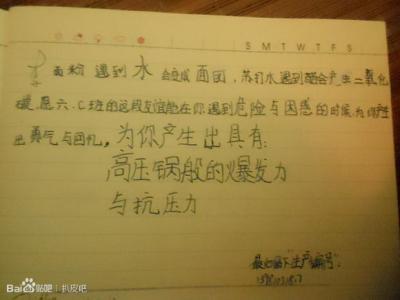 S M T W T F S
面粉遇到水会变成面团,苏打水遇到醋会产生二氧化
碳,愿六.C班的这段友谊能在你遇到危险与困惑的时候,为你产生
出勇气与团礼,为你产生出具有:
高压锅般的爆发力
与抗压力
最后留下"生产编号":
Bai贴吧 | 扒皮吧